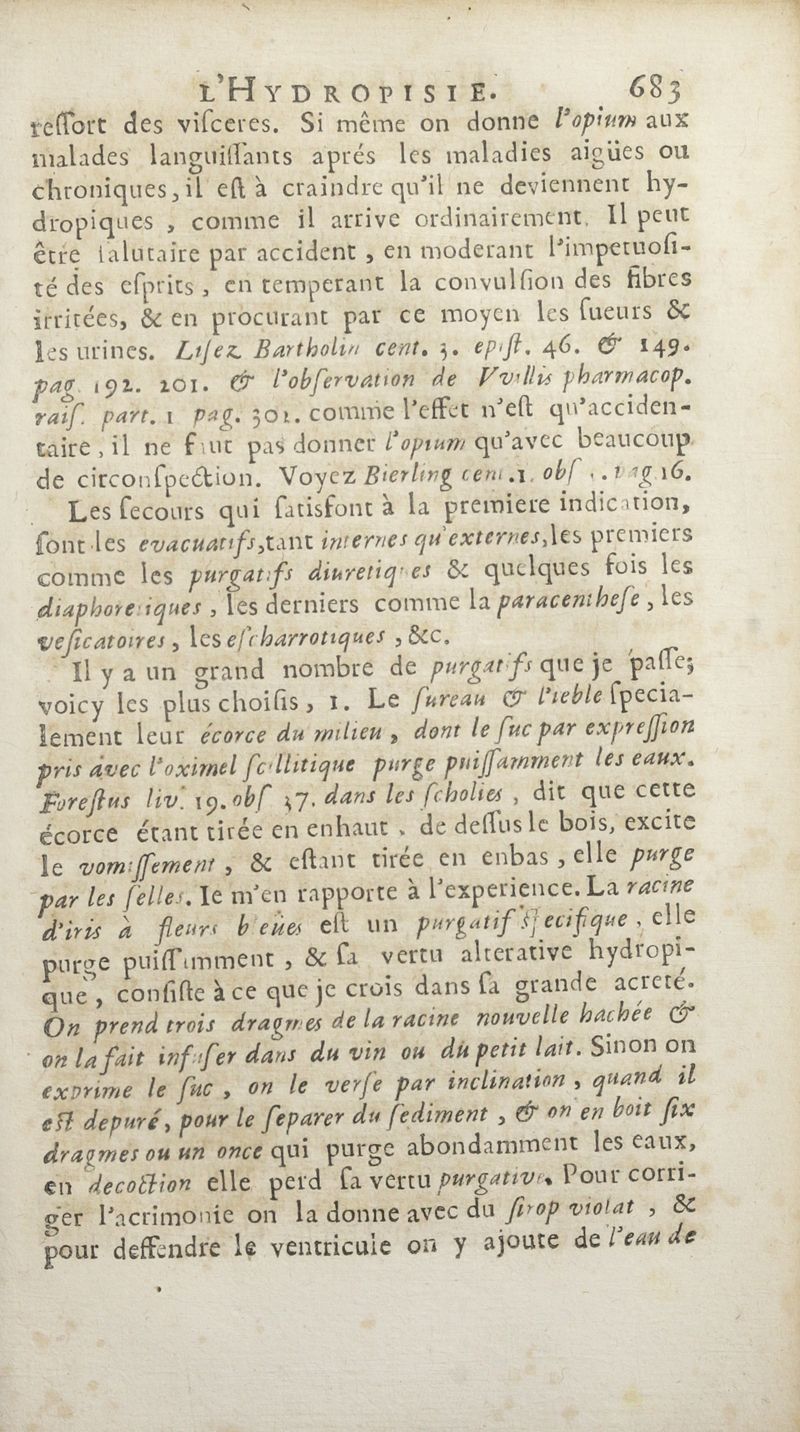 L'HYDROPISIE. 683
ressort des visceres. Si même on donne l'opium aux
malades languissants aprés les maladies aigües ou
chroniques, il est à craindre qu'il ne deviennent hy-
dropiques , comme il arrive ordinairement. Il peut
être salutaire par accident , en moderant l'impetuosi-
té des esprits , en temperant la convulsion des fibres
irritées, & en procurant par ce moyen les sueurs &
les urines. Lisez Bartholin cent. 3. epist. 46. & 149.
pag. 192. 201. & l'observation de Vvillis pharmacop.
rais. part. 1 pag. 301. comme l'effet n'est qu'acciden-
taire , il ne faut pas donner l'opium qu'avec beaucoup
de circonspection. Voyez Bierling cent. 1. obs 16.
Les secours qui satisfont à la premiere indication,
sont les evacuatifs, tant internes qu'externes, les premiers
comme les purgatifs diuretiques & quelques fois les
diaphoretiques , les derniers comme la paracenthese , les
vesicatoires , les escharrotiques , &c.
Il y a un grand nombre de purgatifs que je passe;
voicy les plus choisis , 1. Le sureau & l'ieble specia-
lement leur écorce du milieu , dont le suc par expression
pris avec l'oximel scillitique purge puissamment les eaux.
Forestus liv. 19. obs 37. dans les scholies , dit que cette
écorce étant tirée en enhaut , de dessus le bois, excite
le vomissement , & estant tirée en enbas , elle purge
par les selles. Ie m'en rapporte à l'experience. La racine
d'iris à fleurs bleües est un purgatif specifique , elle
purge puissamment , & sa vertu alterative hydropi-
que , consiste à ce que je crois dans sa grande acreté.
On prend trois dragmes de la racine nouvelle hachée &
on la fait infuser dans du vin ou du petit lait. Sinon on
exprime le suc , on le verse par inclination , quand il
est depuré, pour le separer du sediment , & on en boit six
dragmes ou un once qui purge abondamment les eaux,
en decoction elle perd sa vertu purgative. Pour corri-
ger l'acrimonie on la donne avec du sirop violat , &
pour deffendre le ventricule on y ajoute de l'eau de